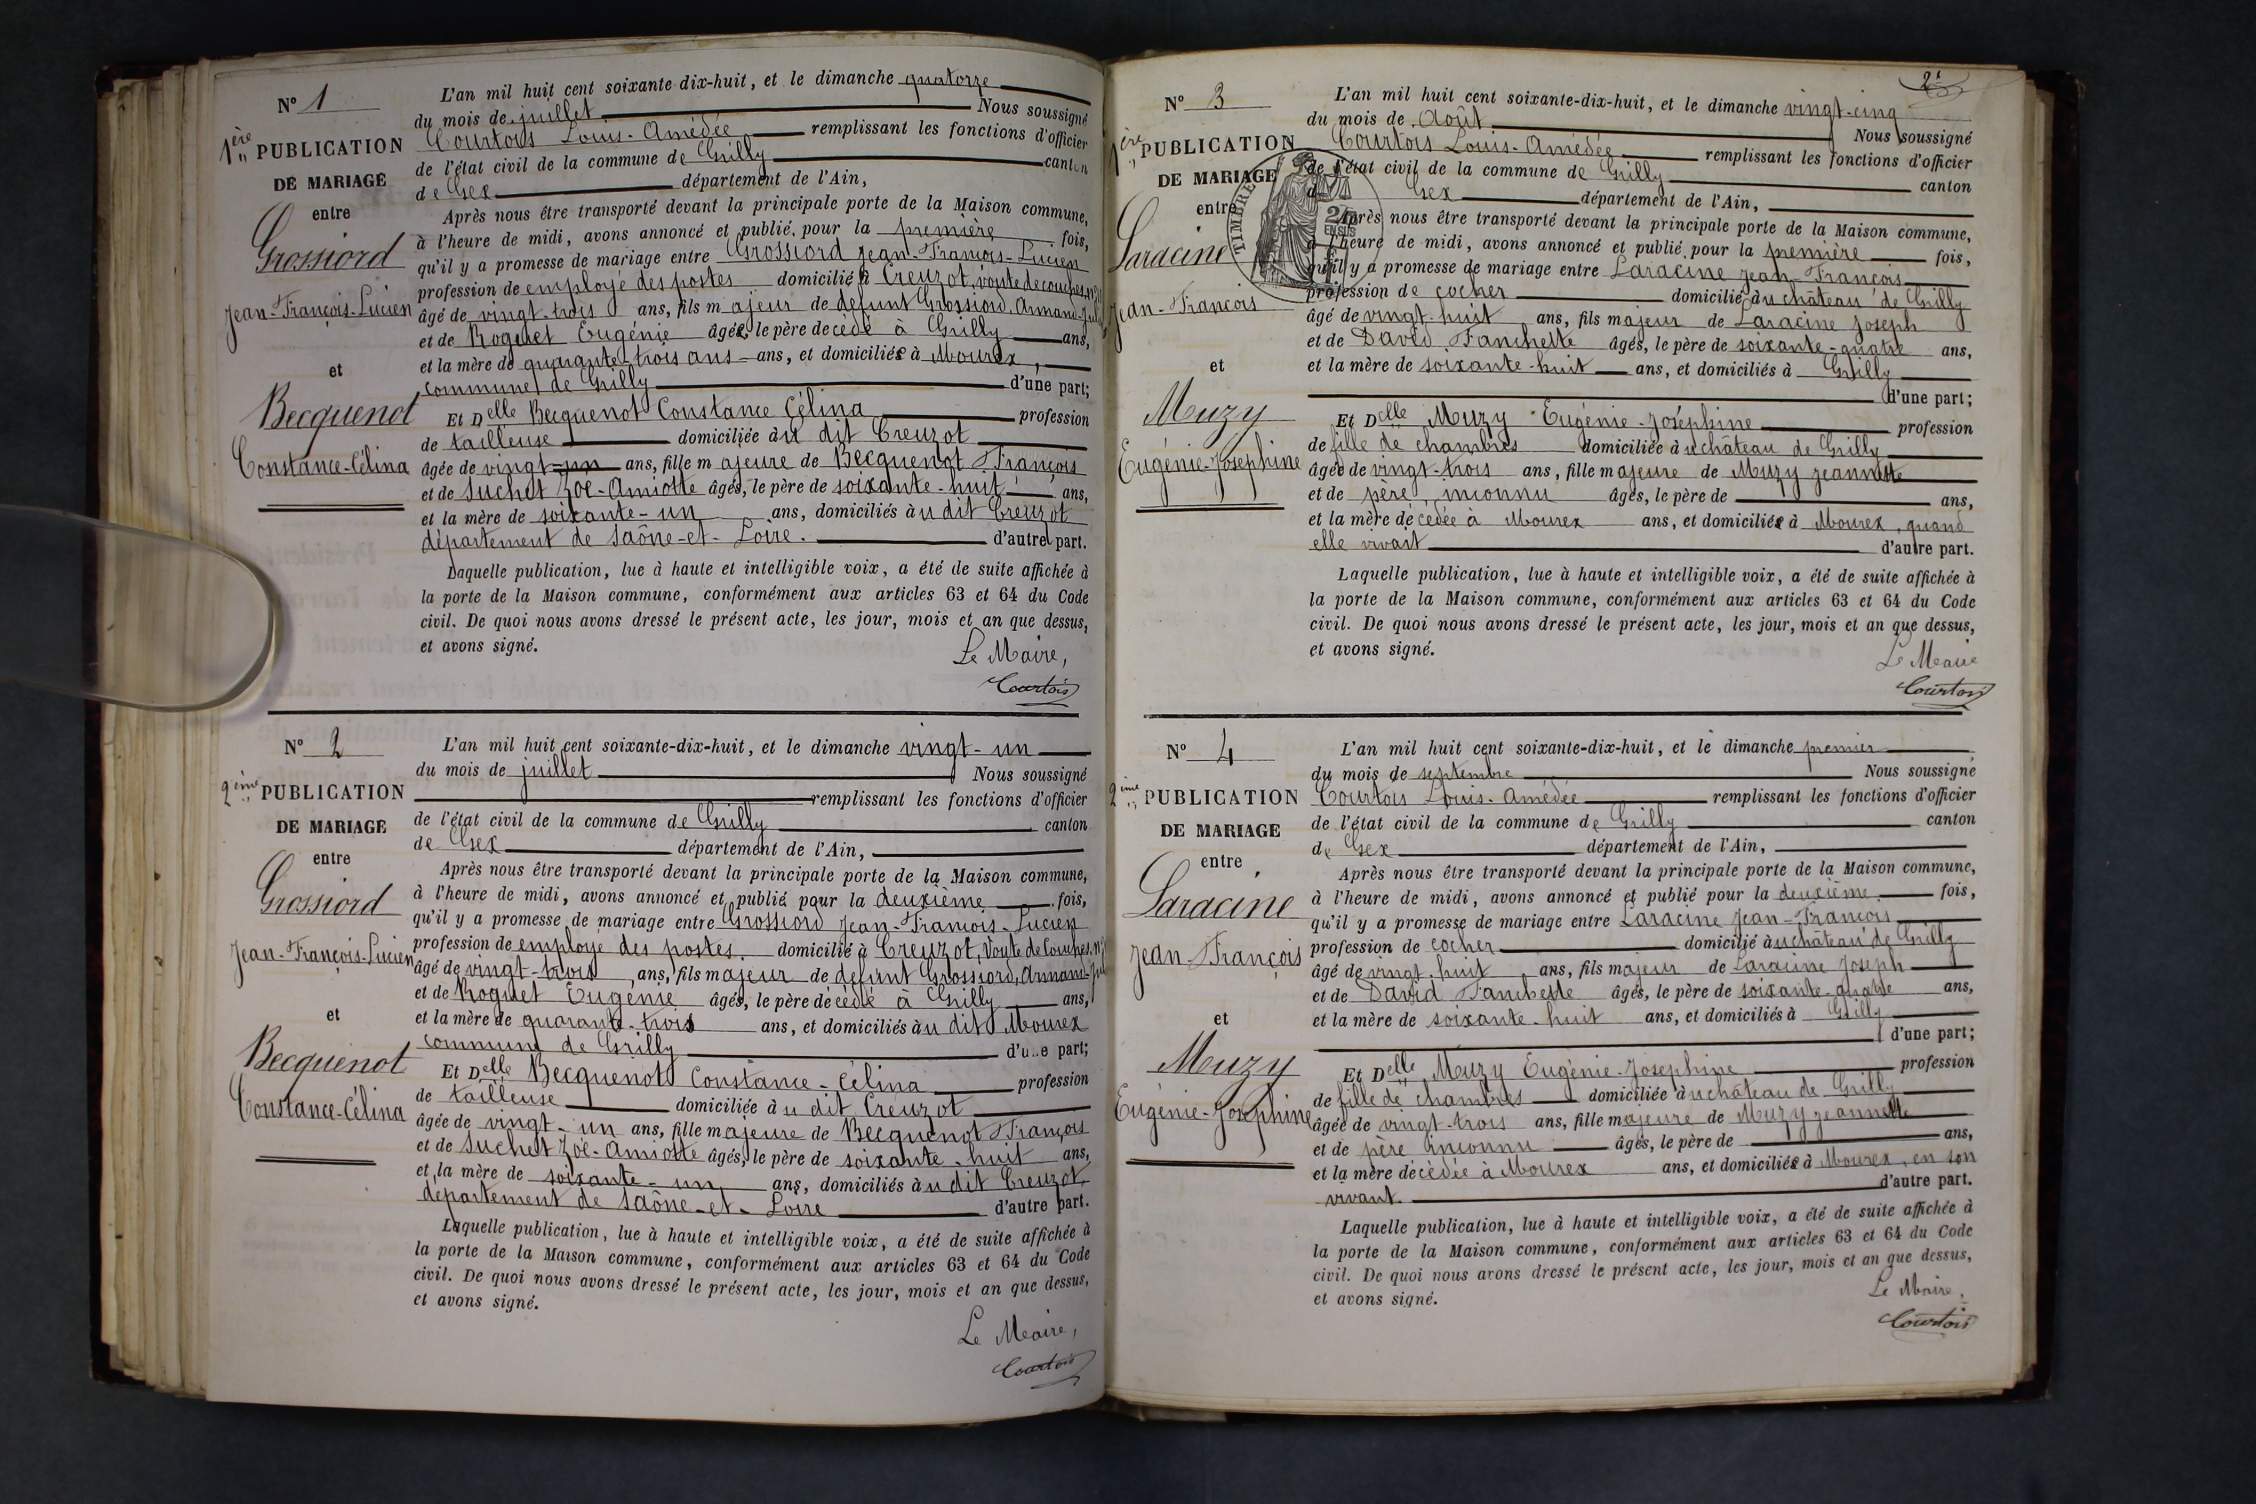 N° 1
1ère PUBLICATION
DE MARIAGE
entre
Grossiord
Jean-François-Lucien
et
Becquenot
Constance-Célina
L'an mil huit cent soixante-dix-huit, et le dimanche quatorze
du mois de juillet Nous soussigné
Courtois Louis-Amédée remplissant les fonctions d'officier
de l'état civil de la commune de Grilly canton
de Gex département de l'Ain,
Après nous être transporté devant la principale porte de la Maison commune,
à l'heure de midi, avons annoncé et publié pour la première fois,
qu'il y a promesse de mariage entre Grossiord Jean-François-Lucien
profession de employé des postes domicilié à Creuzot, voûte de couches, n°
âgé de vingt-trois ans, fils majeur de défunt Grossiord, Armand-
et de Roguet Eugénie âgés, le père décédé à Grilly ans,
et la mère de quarante-trois ans ans, et domiciliés à Mourex,
commune de Grilly d'une part;
Et Delle Becquenot Constance Célina profession
de tailleuse domiciliée au dit Creuzot
âgée de vingt-un ans, fille majeure de Becquenot François
et de Suchet Zoé-Amiotte âgés, le père de soixante-huit ans,
et la mère de soixante-un ans, domiciliés au dit Creuzot
département de Saône-et-Loire. d'autre part.
Laquelle publication, lue à haute et intelligible voix, a été de suite affichée à
la porte de la Maison commune, conformément aux articles 63 et 64 du Code
civil. De quoi nous avons dressé le présent acte, les jour, mois et an que dessus,
et avons signé.
Le Maire,
Courtois
N° 2
2ème PUBLICATION
DE MARIAGE
entre
Grossiord
Jean-François-Lucien
et
Becquenot
Constance-Célina
L'an mil huit cent soixante-dix-huit, et le dimanche vingt-un
du mois de juillet Nous soussigné
remplissant les fonctions d'officier
de l'état civil de la commune de Grilly canton
de Gex département de l'Ain,
Après nous être transporté devant la principale porte de la Maison commune,
à l'heure de midi, avons annoncé et publié pour la deuxième fois,
qu'il y a promesse de mariage entre Grossiord Jean-François-Lucien
profession de employé des postes. domicilié à Creuzot, Voute de Couches, n°
âgé de vingt-trois ans, fils majeur de défunt Grossiord, Armand-
et de Roguet Eugénie âgés, le père décédé à Grilly ans,
et la mère de quarante-trois ans, et domiciliés au dit Mourex
commune de Grilly d'une part;
Et Delle Becquenot Constance-Célina profession
de tailleuse domiciliée au dit Creuzot
âgée de vingt-un ans, fille majeure de Becquenot François
et de Suchet Zoé-Amiotte âgés, le père de soixante-huit ans,
et la mère de soixante-un ans, domiciliés au dit Creuzot,
département de Saône-et-Loire d'autre part.
Laquelle publication, lue à haute et intelligible voix, a été de suite affichée à
la porte de la Maison commune, conformément aux articles 63 et 64 du Code
civil. De quoi nous avons dressé le présent acte, les jour, mois et an que dessus,
et avons signé.
Le Maire,
Courtois
N° 3
1ère PUBLICATION
DE MARIAGE
entre
Laracine
Jean-François
et
Muzy
Eugénie-Joséphine
TIMBRE
L'an mil huit cent soixante-dix-huit, et le dimanche vingt-cinq
du mois de Août Nous soussigné
Courtois Louis-Amédée remplissant les fonctions d'officier
de l'état civil de la commune de Grilly canton
d Gex département de l'Ain,
Après nous être transporté devant la principale porte de la Maison commune,
à l'heure de midi, avons annoncé et publié pour la première fois,
qu'il y a promesse de mariage entre Laracine Jean-François
profession de cocher domicilié au château de Grilly
âgé de vingt-huit ans, fils majeur de Laracine Joseph
et de David Fanchette âgés, le père de soixante-quatre ans,
et la mère de soixante-huit ans, et domiciliés à Grilly
d'une part;
Et Delle Muzy Eugénie-Joséphine profession
de fille de chambres domiciliée au château de Grilly
âgée de vingt-trois ans, fille majeure de Muzy Jeannette
et de père inconnu âgés, le père de ans,
et la mère décédée à Mourex ans, et domiciliés à Mourex, quand
elle vivait d'autre part.
Laquelle publication, lue à haute et intelligible voix, a été de suite affichée à
la porte de la Maison commune, conformément aux articles 63 et 64 du Code
civil. De quoi nous avons dressé le présent acte, les jour, mois et an que dessus,
et avons signé.
Le Maire
Courtois
N° 4
2ème PUBLICATION
DE MARIAGE
entre
Laracine
Jean-François
et
Muzy
Eugénie-Joséphine
L'an mil huit cent soixante-dix-huit, et le dimanche premier
du mois de septembre Nous soussigné
Courtois Louis-Amédée remplissant les fonctions d'officier
de l'état civil de la commune de Grilly canton
de Gex département de l'Ain,
Après nous être transporté devant la principale porte de la Maison commune,
à l'heure de midi, avons annoncé et publié pour la deuxième fois,
qu'il y a promesse de mariage entre Laracine Jean-François
profession de cocher domicilié au château de Grilly
âgé de vingt-huit ans, fils majeur de Laracine Joseph
et de David Fanchette âgés, le père de soixante-quatre ans,
et la mère de soixante-huit ans, et domiciliés à Grilly
d'une part;
Et Delle Muzy Eugénie-Joséphine profession
de fille de chambres domiciliée au château de Grilly
âgée de vingt-trois ans, fille majeure de Muzy Jeannette
et de père inconnu âgés, le père de ans,
et la mère décédée à Mourex ans, et domiciliés à Mourex, en son
vivant. d'autre part.
Laquelle publication, lue à haute et intelligible voix, a été de suite affichée à
la porte de la Maison commune, conformément aux articles 63 et 64 du Code
civil. De quoi nous avons dressé le présent acte, les jour, mois et an que dessus,
et avons signé.
Le Maire,
Courtois